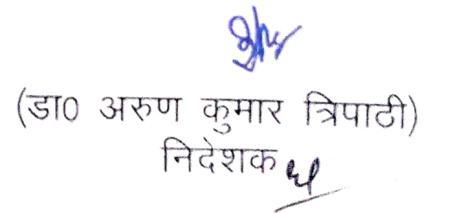 (डा0 अरुण कुमार त्रिपाठी)
निदेशक